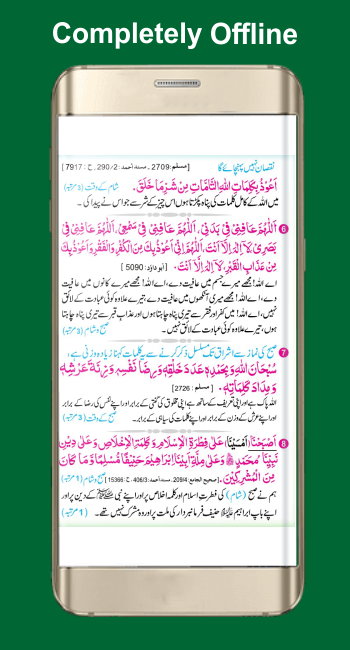 Completely Offline
نقصان نہیں پہنچائے گا [مسلم: 2709 ۔ مسند احمد: 290/2 ۔ ح : 7917]
اَعُوْذُ بِكَلِمَاتِ اللهِ التَّامَّاتِ مِنْ شَرِّ مَا خَلَقَ۔ شام کے وقت (3 مرتبہ)
میں اللہ کے کامل کلمات کی پناہ پکڑتا ہوں اس چیز کے شر سے جو اس نے پیدا کی ۔
6 اَللّٰهُمَّ عَافِنِيْ فِيْ بَدَنِيْ، اَللّٰهُمَّ عَافِنِيْ فِيْ سَمْعِيْ، اَللّٰهُمَّ عَافِنِيْ فِيْ
بَصَرِيْ لَآ اِلٰهَ اِلَّا اَنْتَ، اَللّٰهُمَّ اِنِّيْ اَعُوْذُ بِكَ مِنَ الْكُفْرِ وَالْفَقْرِ وَاَعُوْذُ بِكَ
مِنْ عَذَابِ الْقَبْرِ لَآ اِلٰهَ اِلَّا اَنْتَ۔ [ابوداؤد: 5090]
اے اللہ! مجھے میرے جسم میں عافیت دے، اے اللہ! مجھے میرے کانوں میں عافیت
دے، اے اللہ! مجھے میری آنکھوں میں عافیت دے، تیرے علاوہ کوئی عبادت کے لائق
نہیں، اے اللہ! میں کفر اور فقر سے تیری پناہ چاہتا ہوں اور عذاب قبر سے تیری پناہ چاہتا
ہوں، تیرے علاوہ کوئی عبادت کے لائق نہیں۔ صبح و شام (3 مرتبہ)
7 صبح کی نماز سے اشراق تک مسلسل ذکر کرنے سے یہ کلمات کہنا زیادہ وزنی ہے:
سُبْحَانَ اللهِ وَبِحَمْدِهٖ عَدَدَ خَلْقِهٖ وَرِضَا نَفْسِهٖ وَزِنَةَ عَرْشِهٖ
وَمِدَادَ كَلِمَاتِهٖ۔ [مسلم: 2726]
اللہ پاک ہے اور اپنی تعریف کے ساتھ ہے اپنی مخلوق کی گنتی کے برابر اور اپنے نفس کی رضا کے برابر
اور اپنے عرش کے وزن کے برابر اور اپنے کلمات کی سیاہی کے برابر۔ صبح کے وقت (3 مرتبہ)
8 اَصْبَحْنَا (اَمْسَيْنَا) عَلٰى فِطْرَةِ الْاِسْلَامِ وَكَلِمَةِ الْاِخْلَاصِ وَعَلٰى دِيْنِ
نَبِيِّنَا مُحَمَّدٍ ﷺ وَعَلٰى مِلَّةِ اَبِيْنَا اِبْرَاهِيْمَ حَنِيْفًا مُّسْلِمًا وَّمَا كَانَ
مِنَ الْمُشْرِكِيْنَ۔ [صحیح الجامع: 209/4، احمد: 406/3، ح: 15366] صبح و شام (1 مرتبہ)
ہم نے صبح (شام) کی فطرتِ اسلام اور کلمہ اخلاص پر اور اپنے نبی ﷺ کے دین پر اور
اپنے باپ ابراہیم علیہ السلام حنیف فرمانبردار کی ملت پر اور وہ مشرک نہیں تھے۔ (1 مرتبہ)